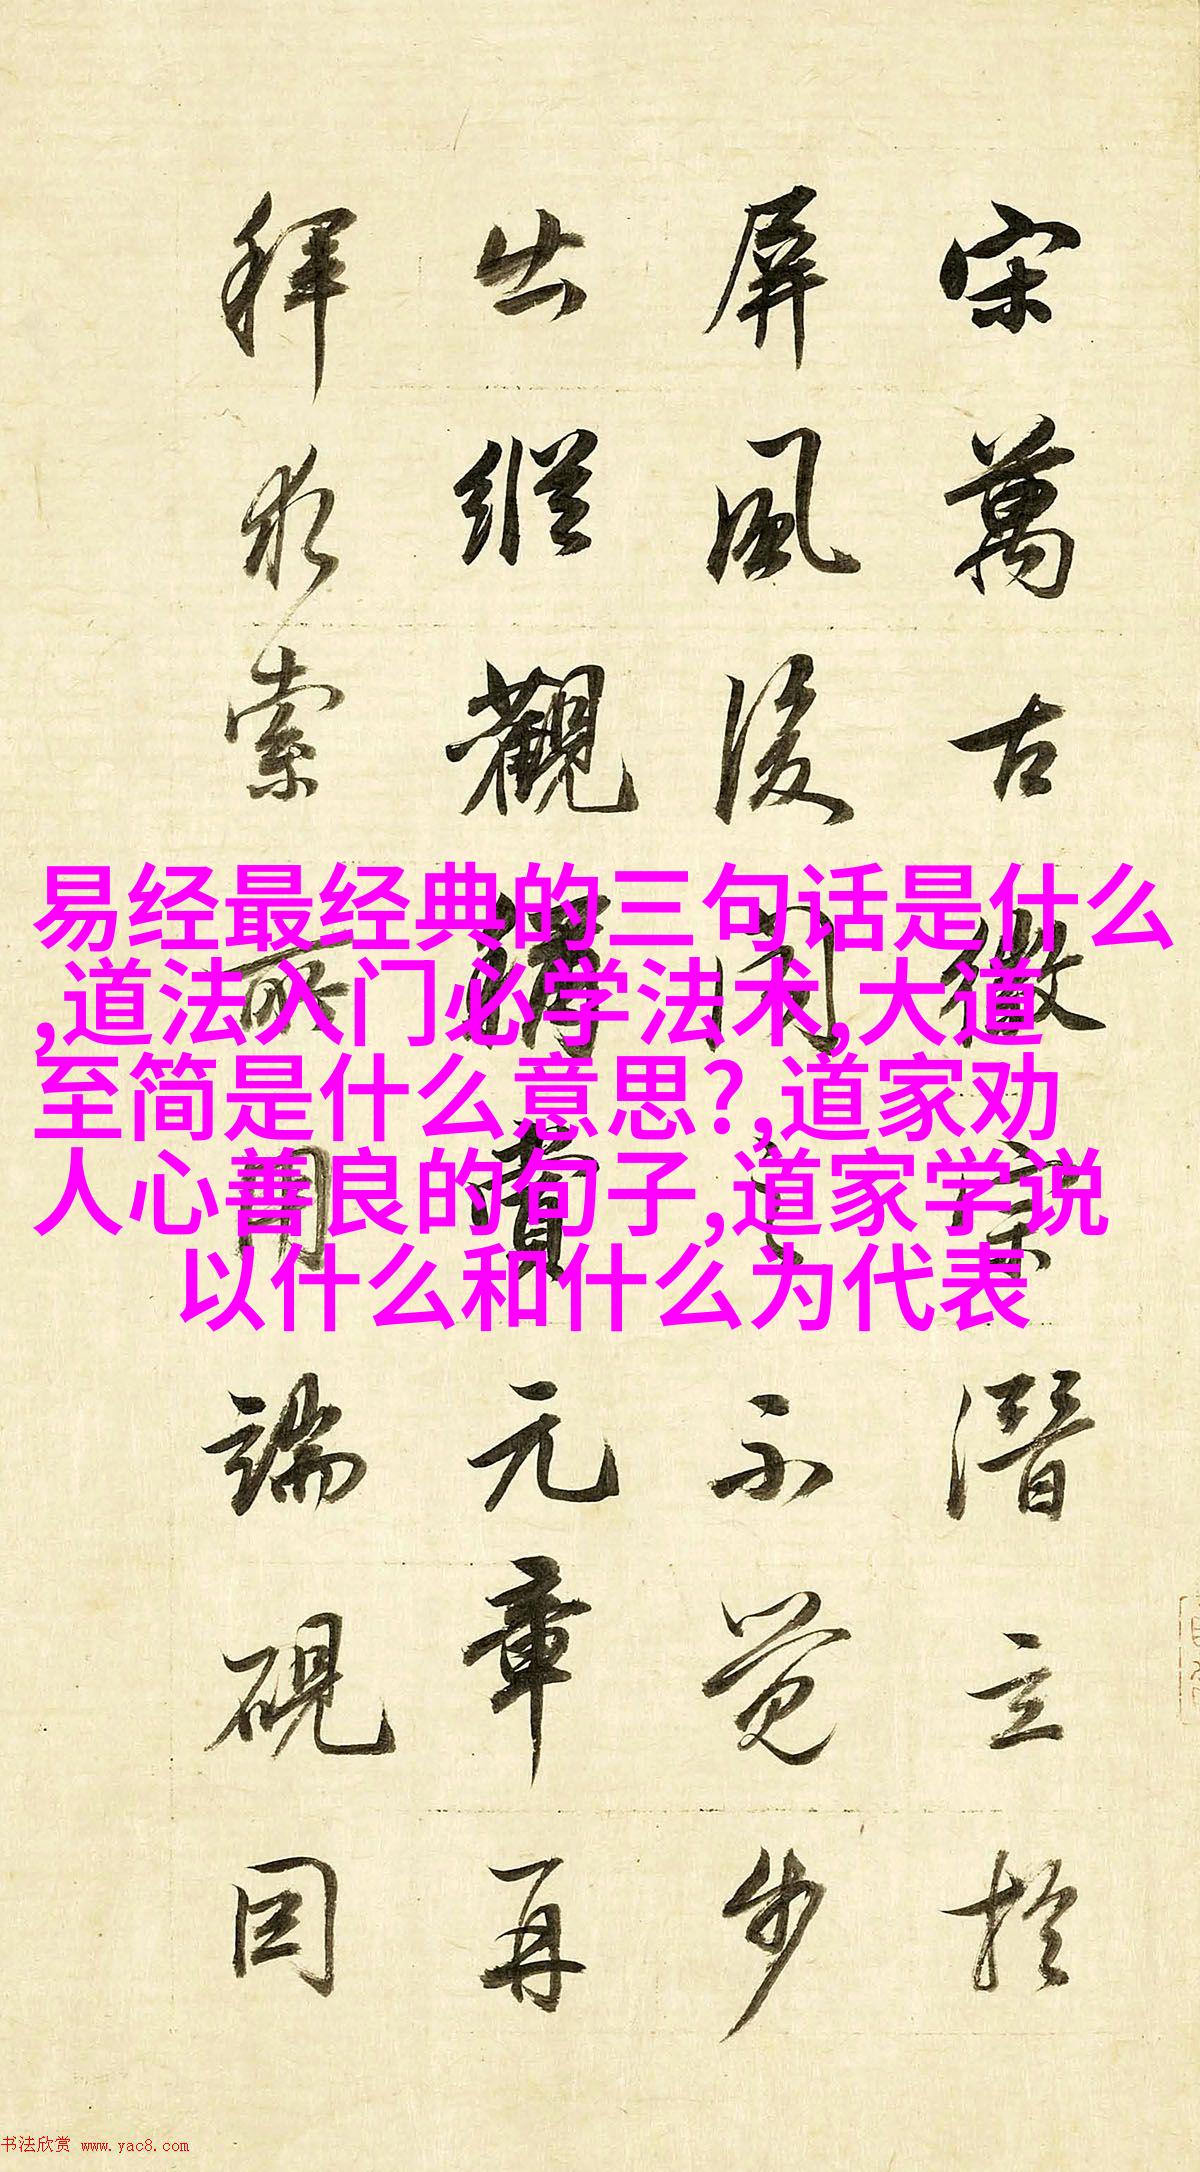 宋萬古徽宗潛立於
屏風後閱之不覺步
出縱觀稱賞元章再
拜求索所用端硯因
易经最经典的三句话是什么
,道法入门必学法术,大道
至简是什么意思?,道家劝
人心善良的句子,道家学说
以什么和什么为代表
书法欣赏 www.yac8.com